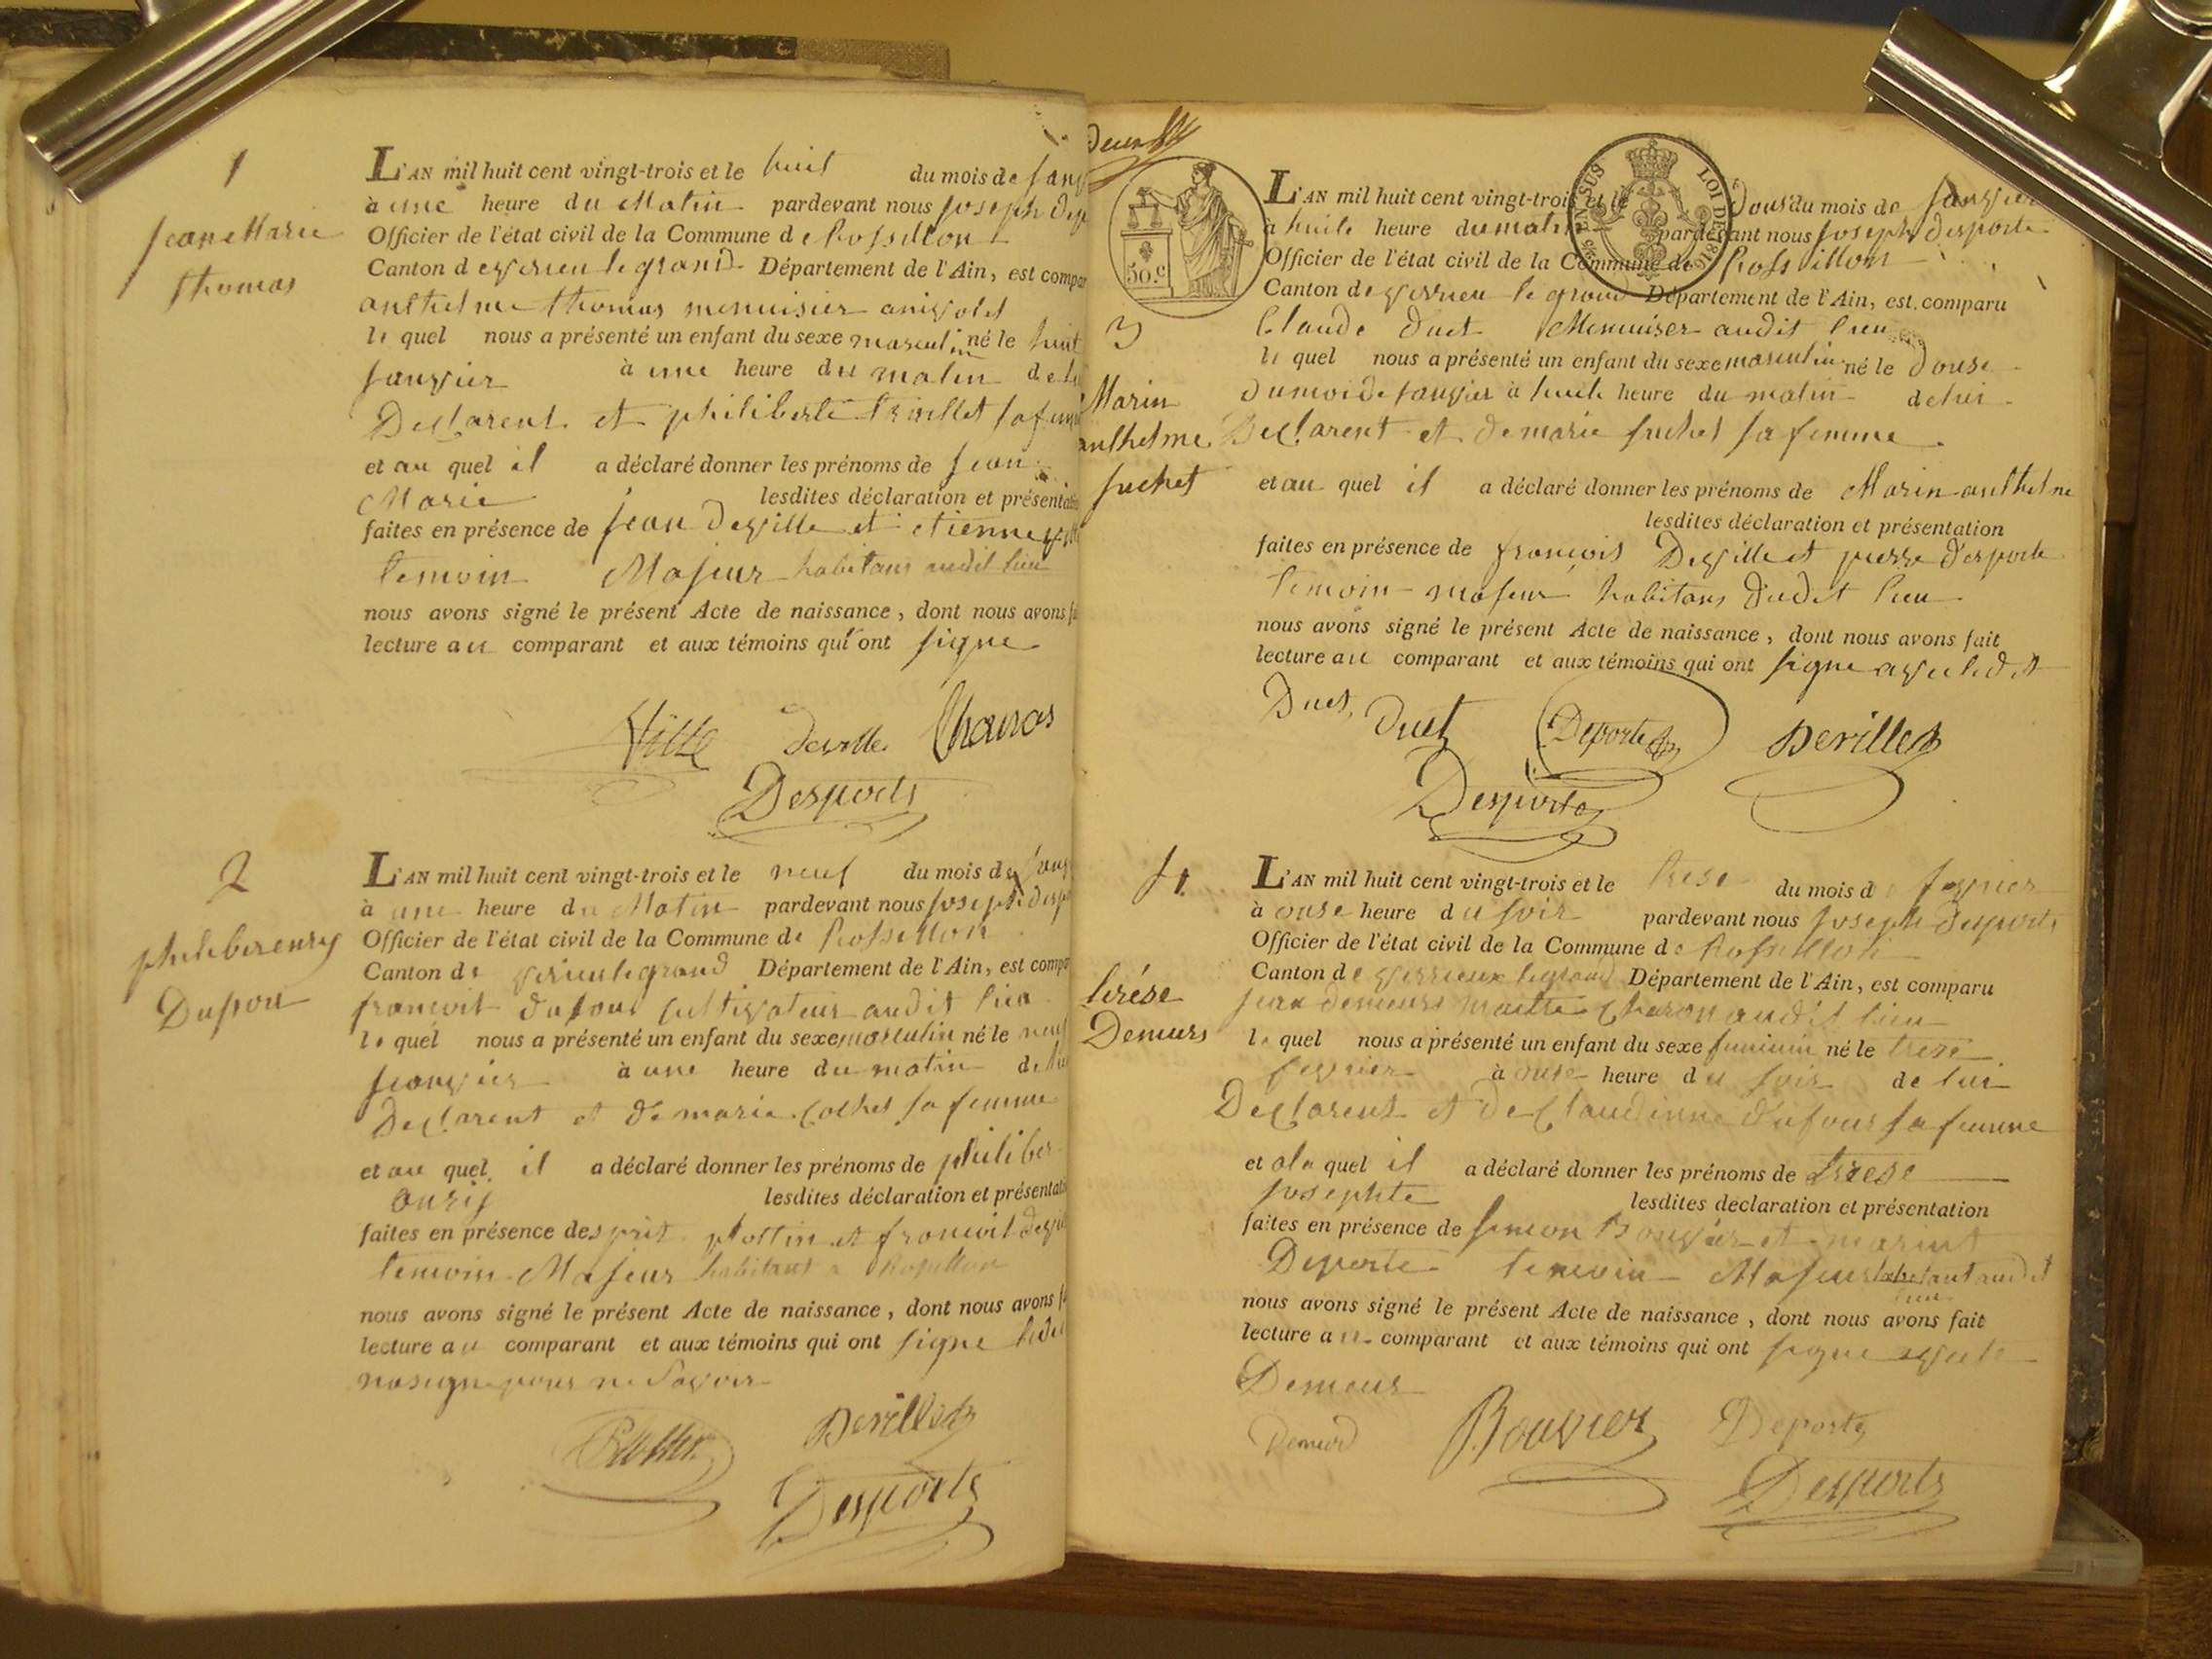 1
Jean Marie
thomas
L'AN mil huit cent vingt-trois et le huit du mois de Janv
à une heure du Matin pardevant nous Joseph desp
Officier de l'état civil de la Commune de Rossillon
Canton de virieu le grand Département de l'Ain, est compa
anthelme thomas menuisier
le quel nous a présenté un enfant du sexe masculin né le huit
Janvier à une heure du matin de lui
Declarent et philiberte triollet sa femme
et au quel il a déclaré donner les prénoms de Jean
Marie lesdites déclaration et présentation
faites en présence de Jean deville et etienne
temoin Majeur habitans audit lieu
nous avons signé le présent Acte de naissance, dont nous avons f
lecture au comparant et aux témoins qui ont signe
Ville deville thomas
Desporte
2
philiber enry
Dufour
L'AN mil huit cent vingt-trois et le neuf du mois de Janv
à une heure du Matin pardevant nous Joseph desp
Officier de l'état civil de la Commune de Rossillon
Canton de virieu le grand Département de l'Ain, est compa
francoit dufour cultivateur audit lieu
le quel nous a présenté un enfant du sexe masculin né le neuf
Janvier à une heure du matin de lui
Declarent et de marie cochet sa femme
et au quel il a déclaré donner les prénoms de philiber
lesdites déclaration et présentati
faites en présence desprit plottin et francoit devil
temoin Majeur habitant a Rossillon
nous avons signé le présent Acte de naissance, dont nous avons f
lecture au comparant et aux témoins qui ont signe
na signe pour ne savoir
Deville
Desporte
50.c
EN SUS
LOI DE 1816
3
Marin
anthelme
suchet
L'AN mil huit cent vingt-trois et le douse du mois de Janvier
à huite heure du matin pardevant nous Joseph desporte
Officier de l'état civil de la Commune de Rossillon
Canton de virieu le grand Département de l'Ain, est comparu
Claude duet Menuiser audit lieu
le quel nous a présenté un enfant du sexe masculin né le douse
du moi de Janvier à huite heure du matin de lui
Declarent et de marie suchet sa femme
et au quel il a déclaré donner les prénoms de Marin anthelme
lesdites déclaration et présentation
faites en présence de francois Deville et pierre desporte
temoin majeur habitans dudit lieu
nous avons signé le présent Acte de naissance, dont nous avons fait
lecture au comparant et aux témoins qui ont signe avec ledit
Duet
duet Deporte Deville
Desporte
4
térése
Demurs
L'AN mil huit cent vingt-trois et le trese du mois de fevrier
à onse heure du soir pardevant nous Joseph desporte
Officier de l'état civil de la Commune de Rossillon
Canton de virrieux le grand Département de l'Ain, est comparu
Jean demeurs maitre Charon audit lieu
le quel nous a présenté un enfant du sexe feminin né le trese
fevrier à onse heure du soir de lui
Declarent et de Claudinne dufour sa femme
et a la quel il a déclaré donner les prénoms de trese
Josephte lesdites déclaration et présentation
faites en présence de simon Bouvier et marint
Deporte temoin Majeur habitant audit
lieu
nous avons signé le présent Acte de naissance, dont nous avons fait
lecture au comparant et aux témoins qui ont signe avec le
Demeur
Bouvier Deporte
Desporte